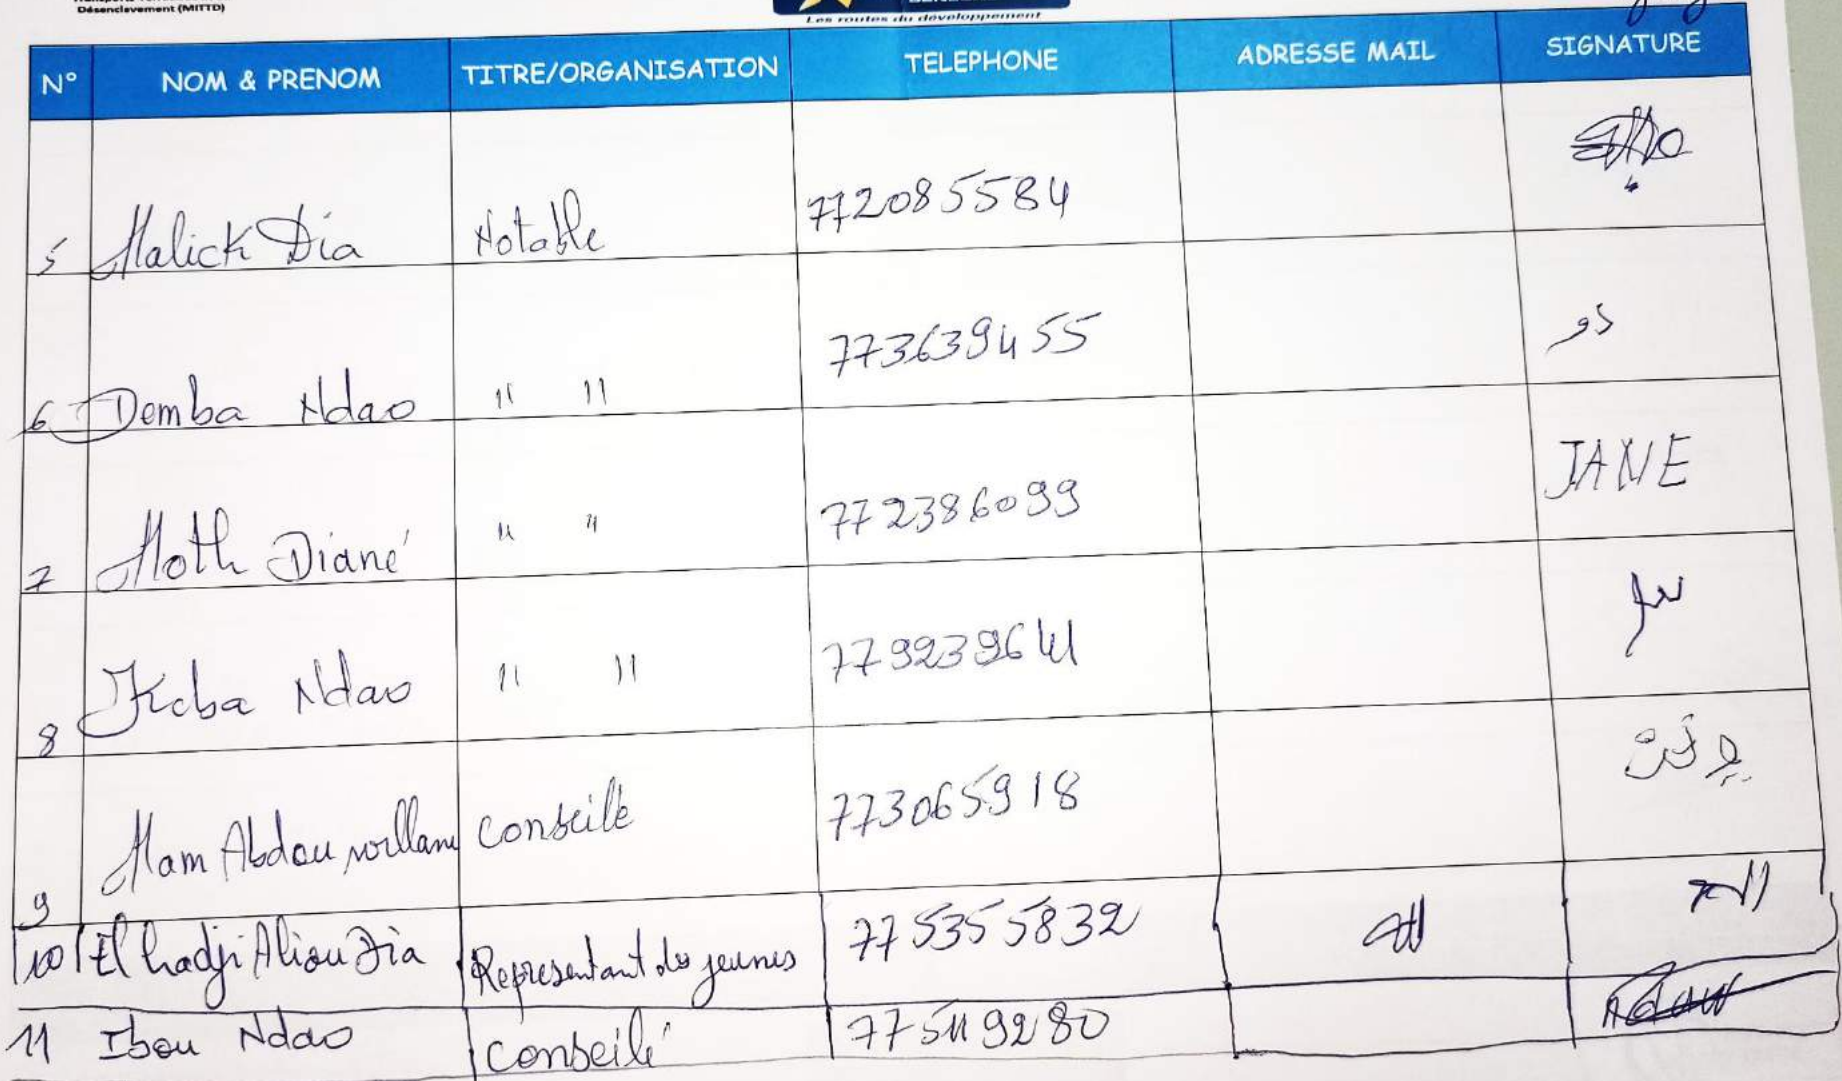 Désenclavement (MITTD)
Les routes du développement
N° NOM & PRENOM TITRE/ORGANISATION TELEPHONE ADRESSE MAIL SIGNATURE
5 Malick Dia Notable 772085584
6 Demba Ndao " " 773639455
7 Moth Diané " " 772386099 JANE
8 Keba Ndao " " 779239641
9 Mam Abdou willane conseille 773065918
10 El hadji Aliou Dia Representant des jeunes 775355832
11 Ibou Ndao Conseillé 775119280 Ndaw